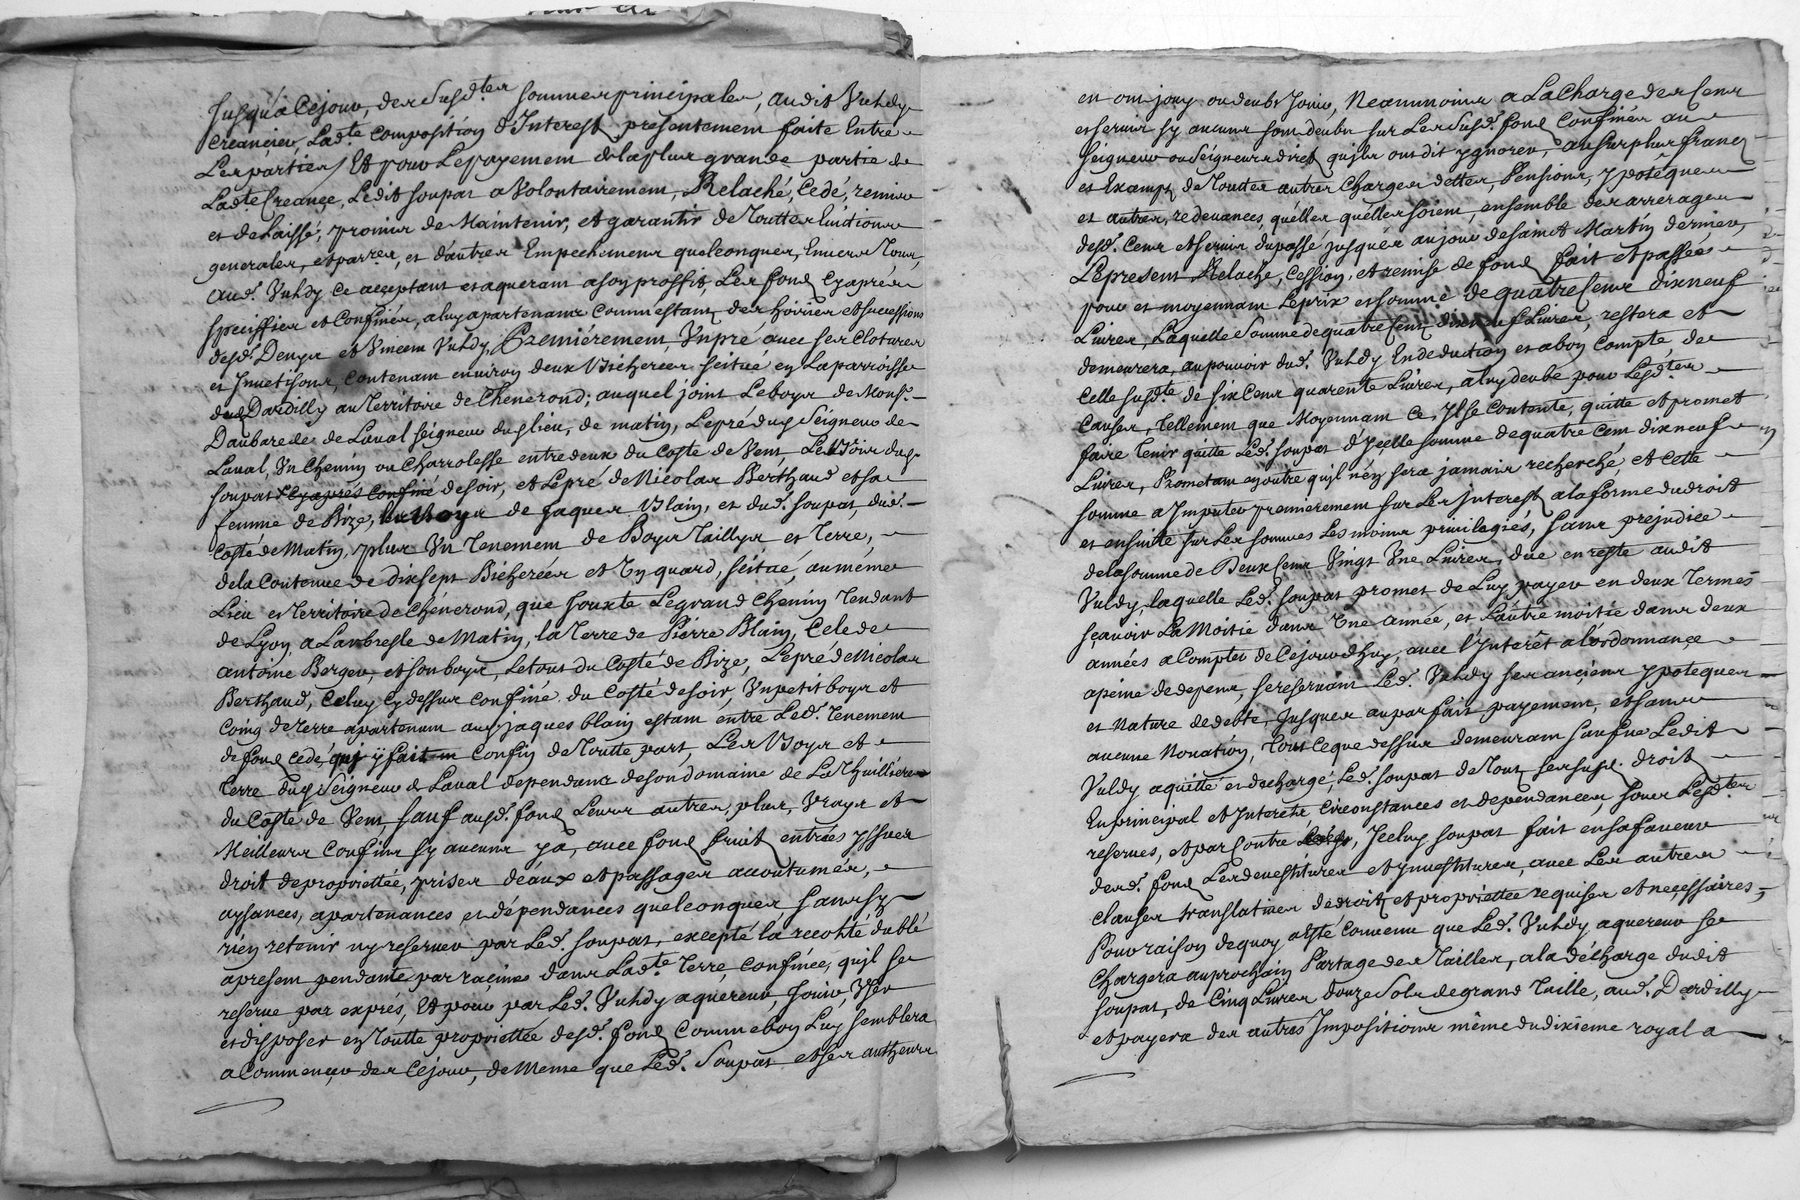 Jusqu'a Cejour, des Susd.tes sommes principales, audit Vuldy
Creancier, Lad.te Composition d'Interest, presentement faite Entre
Les parties / Et pour Le payement de la plus grande partie de
Lad.te Creance, Ledit Soupat a Volontairement, Relaché, Cedé, remis
et delaissé, promis de Maintenir, et garantir de Touttes Evictions
generales, et parres, et d'autres Empechemens quelconques, Envers Tous,
Aud.t Vuldy Ce acceptant et aquerant a son proffit, Les fond Cyaprés
Speciffiés et Confinés, a luy apartenants Comm'estant des hoiries et successions
desd.ts Denys et Vincent Vuldy, Premiérement, Un pré avec ses Clotures
et Inuetisons, Contenant environ deux Bicherées scitué en La parroisse
dud Dardilly au Territoire de Chenerond; auquel joint Le boys de Mons.r
Daubarede de Laval seigneur dud lieu, de matin, Le pré dud Seigneur de
Laval, Un Chemin ou Charrolesse entre deux du Costé de Vent
Soupat Cyaprés Confiné de soir, et Le pré de Nicolas Berthaud et sa
femme de Bize, de Jaques Blain, et dud. Soupat, dud.
Costé de Matin, plus Un Tenement de Boys Taillys et Terre,
de la Contenue de dixsept Bicherées et Un quard, scitué, au méme
Lieu et Territoire de Chénerond, que Jouxte Le grand Chemin Tendant
de Lyon, a Larbresle de Matin, la Terre de Pierre Blain, Cele de
antoine Berger, et son boys, Le tout du Costé de Bize, Le pré de Nicolas
Berthaud, Celuy Cy dessus Confiné du Costé de soir, Un petit boys et
Coing de Terre apartenant aud Jaques blain estant entre Led. Tenement
de fond Cedé, qui y fait un Confin de Toutte part, Les Boys et
Terre dud Seigneur de Laval dependans de son domaine de La Thuilliere
du Costé de Vent, Sauf ausd. fond Leurs autres, plus, Vrays et
Meilleurs Confins sy aucuns y a, avec fond fruit entrées yssues
droit de proprietée, prises d'eaux et passages accoutumés,
aysances, apartenances et dépendances quelconques sans sy
rien retenir ny reserver par Led. Soupat, excepté la recolte du blé
apresent pendante par racines dans Lad.te Terre Confinée, qu'il se
reserve par exprés, Et pour par Led. Vuldy aquereur, Jouir, User
et disposer en Toutte proprietée desd. fond Comme bon Luy semblera
a Commencer des Cejour, de Meme que Led. Soupat et ses autheurs
en ont jouy ou deubt Jouir, Neammoins a La Charge des Cens
et servis sy aucuns sont deubs sur Les Susd. fond Confinés au
Seigneur ou Seigneurs direct qu'ils ont dit ygnorer, au surplus franc
et Exampt de Touttes autres Charges dettes, Pensions, ypotêques
et autres, redevances, quélles quélles soient, ensemble des arrerages
desd. Cens et servis, du passé jusques au jour de saint Martin dernier,
Le present Relaché, Cession, et remise de fond fait et passée
pour et moyennant Le prix et somme de quatre Cens dixneuf
Livres, Laquelle Somme de quatre Cent dixneuf Livres, restera et
demeurera, au pouvoir dud. Vuldy En deduction et a bon Compte, de
Celle susd.te de six Cens quarente Livres, a luy deube pour Lesd.tes
Causes, Tellement que Moyennant Ce, Il se Contente, quitte et promet
faire Tenir quitte Led. Soupat d'ycelle somme de quatre Cent dixneuf
Livres, Prometant en outre qu'il n'en sera jamais recherché, et Cette
somme a Imputer premierement sur Les Interest a la forme du droit
et ensuite sur Les sommes Les moins privilegiés, sans prejudice
de la somme de Deux Cens Vingt Une Livres, due en reste audit
Vuldy, laquelle Led. Soupat promet de Luy payer en deux Termes
sçavoir La Moitié dans Une année, et L'autre moitié dans deux
années a Compter de Cejourdhuy, avec l'Interêt a l'ordonnance
apeine de depens, se reservant Led. Vuldy ses anciens ypoteques
et Nature de debte, Jusques au parfait payement, et sans
aucune Novation, Tout Ce que dessus demeurant Sauf ue Ledit
Vuldy aquitté et dechargé, Led. Soupat de Tous ses susd. droit
En principal et Interêts, Circonstances et dependances, sous Lesd.tes
reserves, et par Contre, Icelluy Soupat fait en sa faveur
desd. fond Les devestitures et ynvestitures, avec Les autres
clauses translatives de droit et proprietée requises et necessaires,
Pour raison de quoy a esté Convenu que Led. Vuldy aquereur se
Chargera au prochain Partage des Tailles, a la décharge dudit
Soupat, de Cinq Livres douze Sols de grand Taille, aud. Dardilly
et payera des autres Impositions même du dixieme royal a